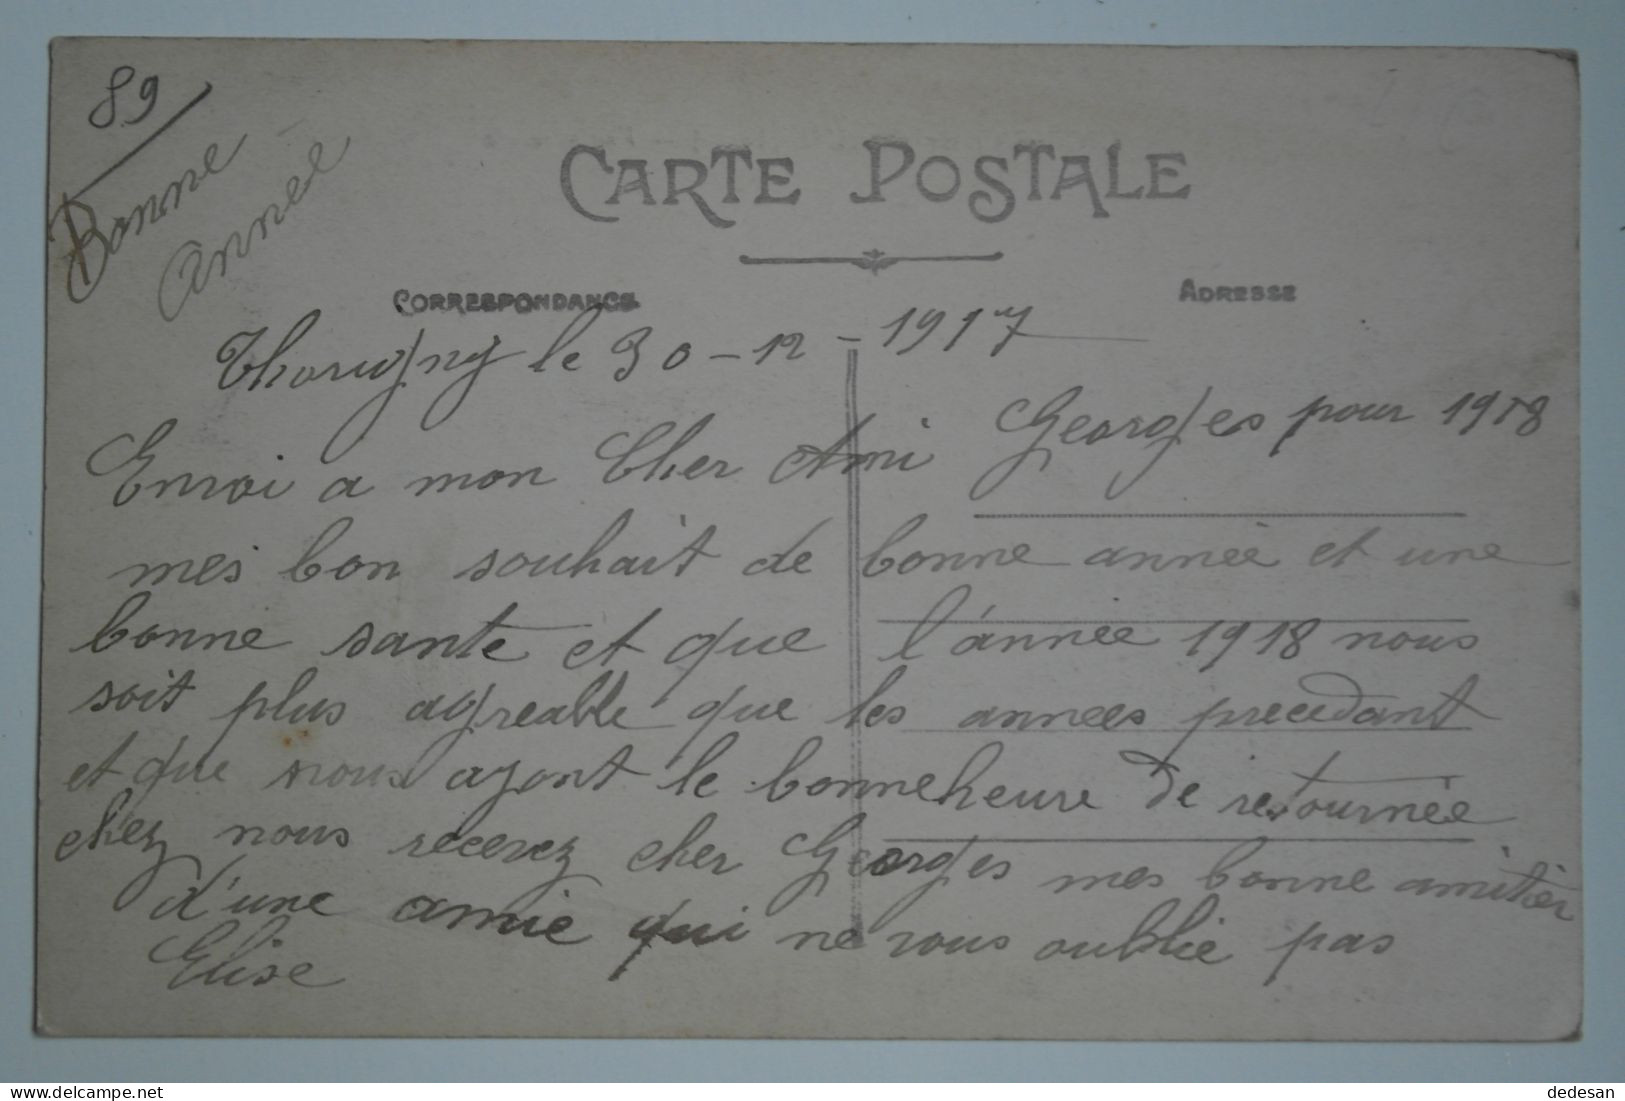 89
Bonne
Année
CARTE POSTALE
CORRESPONDANCE
ADRESSE
Thorigny le 30-12-1917
Envoi a mon Cher Ami Georges pour 1918
mes bon souhait de bonne année et une
bonne sante et que l'année 1918 nous
soit plus agreable que les annees precedant
et que nous ayont le bonneheure de retournée
chez nous recevez cher Georges mes bonne amitier
d'une amie qui ne vous oublie pas
Elise
dedesan